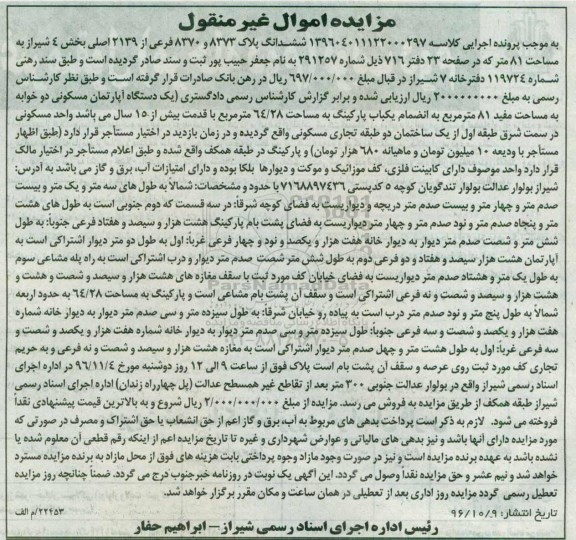 مزایده اموال غیر منقول
به موجب پرونده اجرایی کلاسه ۱۳۹۶۰۴۰۱۱۱۲۲۰۰۰۲۹۷ ششدانگ پلاک ۸۳۷۳ و ۸۳۷۰ فرعی از ۲۱۳۹ اصلی بخش ۴ شیراز به
مساحت ۸۱ متر که در صفحه ۲۳ دفتر ۷۱۶ ذیل شماره ۲۹۱۲۵۷ به نام جعفر حبیب پور ثبت و سند صادر گردیده است و طبق سند رهنی
شماره ۱۱۹۷۲۴ دفترخانه ۷ شیراز در قبال مبلغ ۶۹۷/۰۰۰/۰۰۰ ریال در رهن بانک صادرات قرار گرفته است و طبق نظر کارشناس
رسمی به مبلغ ۲۰۰۰۰۰۰۰۰۰ ریال ارزیابی شده و برابر گزارش کارشناس رسمی دادگستری (یک دستگاه آپارتمان مسکونی دو خوابه
به مساحت مفید ۸۱ مترمربع به انضمام یکباب پارکینگ به مساحت ۶۴/۲۸ مترمربع با قدمت بیش از ۱۵ سال می باشد واحد مسکونی
در سمت شرق طبقه اول از یک ساختمان دو طبقه تجاری مسکونی واقع گردیده و در زمان بازدید در اختیار مستأجر قرار دارد (طبق اظهار
مستأجر با ودیعه ۱۰ میلیون تومان و ماهیانه ۶۸۰ هزار تومان) و پارکینگ در طبقه همکف واقع شده و طبق اعلام مستأجر در اختیار مالک
قرار دارد واحد موصوف دارای کابینت فلزی، کف موزائیک و موکت و دیوارها بلکا بوده و دارای امتیازات آب، برق و گاز می باشد به آدرس:
شیراز بولوار عدالت بولوار تندگویان کوچه ۵ کدپستی ۷۱۶۸۸۹۷۴۳۶ با حدود و مشخصات: شمالاً به طول های سه متر و یک متر و بیست
صدم متر و چهار متر و بیست صدم متر دریچه و دیواریست به فضای کوچه شرقا: در سه قسمت که دوم جنوبی است به طول های هشت
متر و پنجاه صدم متر و نود صدم متر و چهار متر دیواریست به فضای پشت بام پارکینگ هشت هزار و سیصد و هفتاد فرعی جنوبا: به طول
شش متر و شصت صدم متر دیوار به دیوار خانه هفت هزار و یکصد و نود و چهار فرعی غرباً: اول به طول دو متر دیوار اشتراکی است به
آپارتمان هشت هزار سیصد و هفتاد و دو فرعی دوم به طول شش متر شصت صدم متر دیوار و درب اشتراکی است به راه پله مشاعی سوم
به طول یک متر و هشتاد صدم متر دیواریست به فضای خیابان کف مورد ثبت با سقف مغازه های هشت هزار و سیصد و شصت و هشت و
هشت هزار و سیصد و شصت و نه فرعی اشتراکی است و سقف آن پشت بام مشاعی است و پارکینگ به مساحت ۶۴/۲۸ به حدود اربعه
شمالاً به طول پنج متر و نود صدم متر درب است به پیاده رو خیابان شرقا: به طول سیزده متر و سی صدم متر دیوار به دیوار خانه شماره
هفت هزار و یکصد و شصت و سه فرعی جنوبا: طول سیزده متر و سی صدم متر دیوار به دیوار خانه شماره هفت هزار و یکصد و شصت و
سه فرعی غرباً: اول به طول هشت متر و چهل صدم متر دیوار اشتراکی است به مغازه هشت هزار و سیصد و شصت و نه فرعی و به حریم
تجاری کف مورد ثبت روی عرصه و سقف آن پشت بام است پلاک فوق از ساعت ۹ الی ۱۲ روز دوشنبه مورخ ۹۶/۱۱/۴ در اداره اجرای
اسناد رسمی شیراز واقع در بولوار عدالت جنوبی ۳۰۰ متر بعد از تقاطع غیر همسطح عدالت (پل چهارراه زندان) اداره اجرای اسناد رسمی
شیراز طبقه همکف از طریق مزایده به فروش می رسد. مزایده از مبلغ ۲/۰۰۰/۰۰۰/۰۰۰ ریال شروع و به بالاترین قیمت پیشنهادی نقداً
فروخته می شود. لازم به ذکر است پرداخت بدهی های مربوط به آب، برق و گاز اعم از حق انشعاب یا حق اشتراک و مصرف در صورتی که
مورد مزایده دارای آنها باشد و نیز بدهی های مالیاتی و عوارض شهرداری و غیره تا تاریخ مزایده اعم از اینکه رقم قطعی آن معلوم شده یا
نشده باشد به عهده برنده مزایده است و نیز در صورت وجود مازاد وجوه پرداختی بابت هزینه های فوق از محل مازاد به برنده مزایده مسترد
خواهد شد و نیم عشر و حق مزایده نقداً وصول می گردد. این آگهی یک نوبت در روزنامه خبرجنوب درج می گردد. ضمناً چنانچه روز مزایده
تعطیل رسمی گردد مزایده روز اداری بعد از تعطیلی در همان ساعت و مکان مقرر برگزار خواهد شد.
تاریخ انتشار: ۹۶/۱۰/۹
۲۲۴۵۳/م الف
رئیس اداره اجرای اسناد رسمی شیراز – ابراهیم حفار